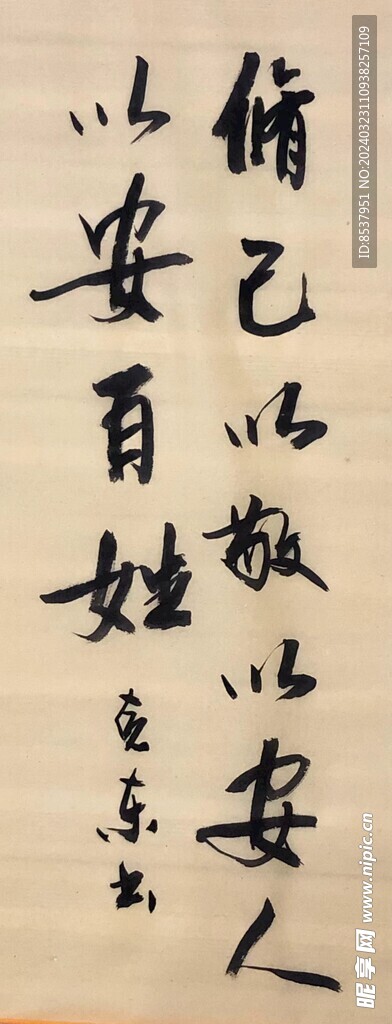 脩己以敬以安人
以安百姓
克东书
ID:8537951 NO:20240323110938257109
昵享网 www.nipic.cn